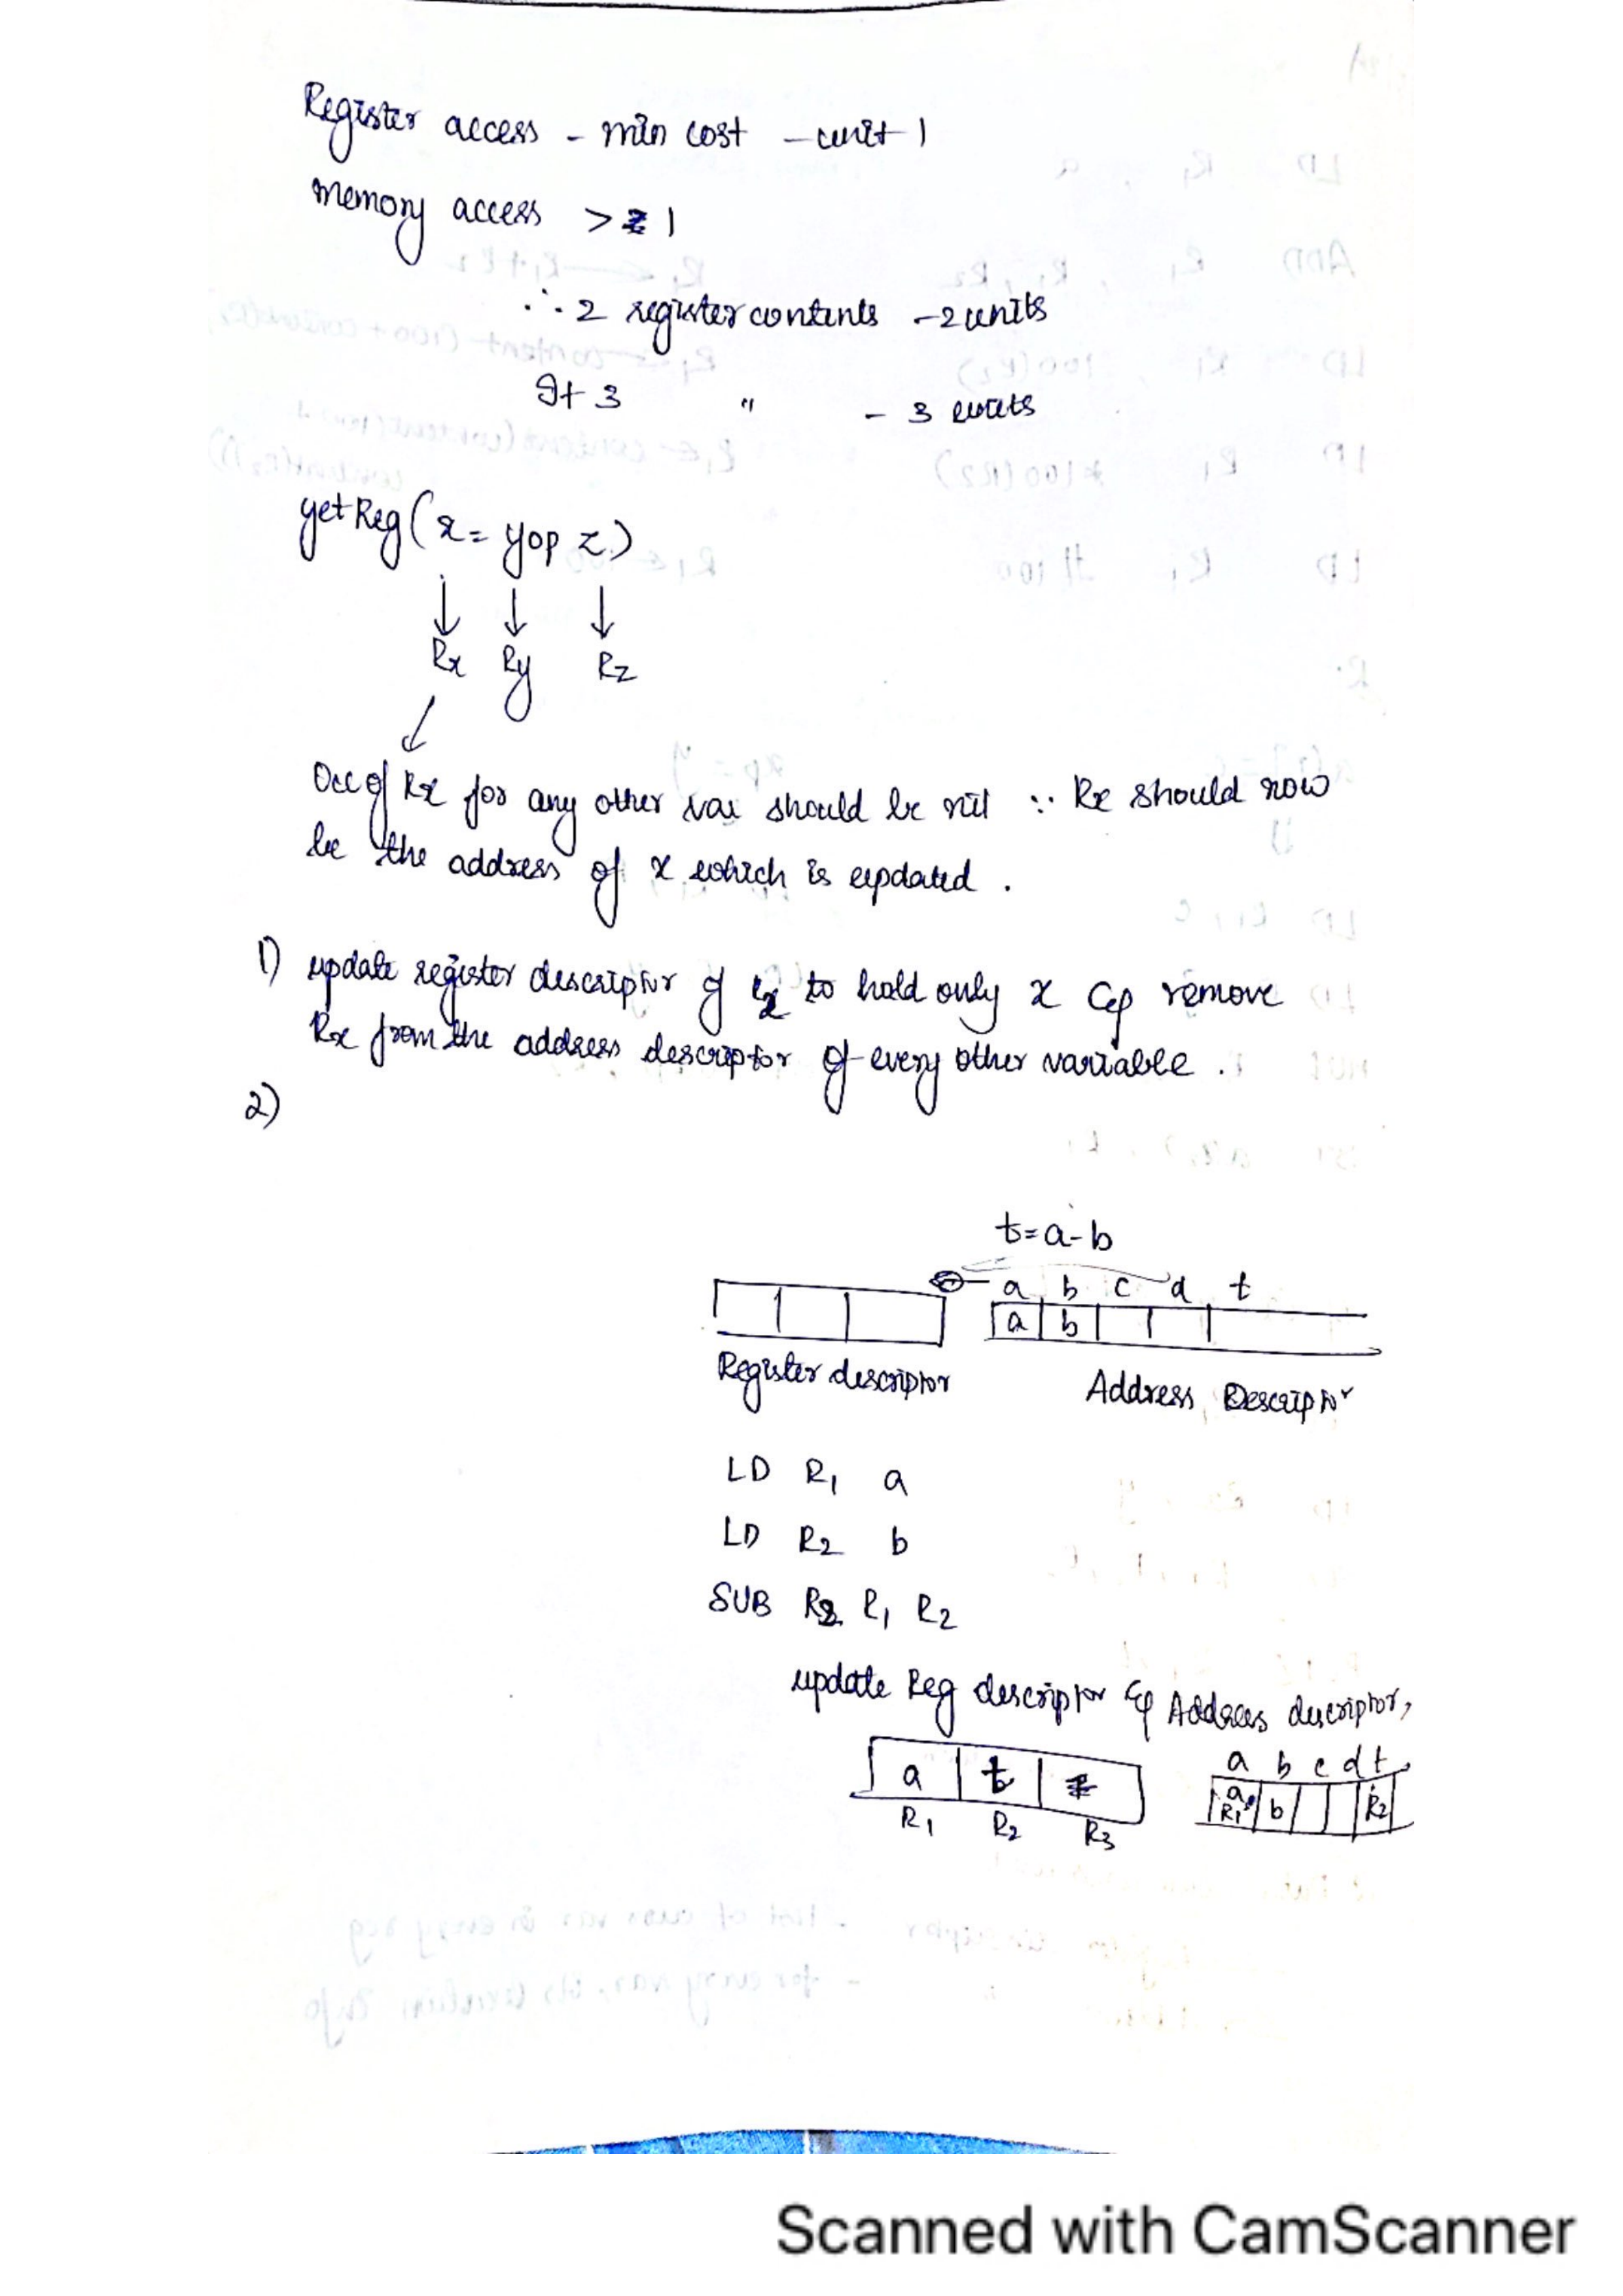 Register access - min cost - unit 1
Memory access > 1
∴ 2 register contents - 2 units
If 3 " - 3 units
getReg(x = y op z)
↓ ↓ ↓
Rx Ry Rz
Occ of Rx for any other var should be nil ∵ Rx should now
be the address of x which is updated.
1) update register descriptor of Rx to hold only x & remove
Rx from the address descriptor of every other variable.
2)
t=a-b
a b c d t
a b
Register descriptor Address Descriptor
LD R1 a
LD R2 b
SUB R2 R1 R2
update Reg descriptor & Address descriptor,
a b c d t
a t
a, R1 b R2
R1 R2 R3
Scanned with CamScanner